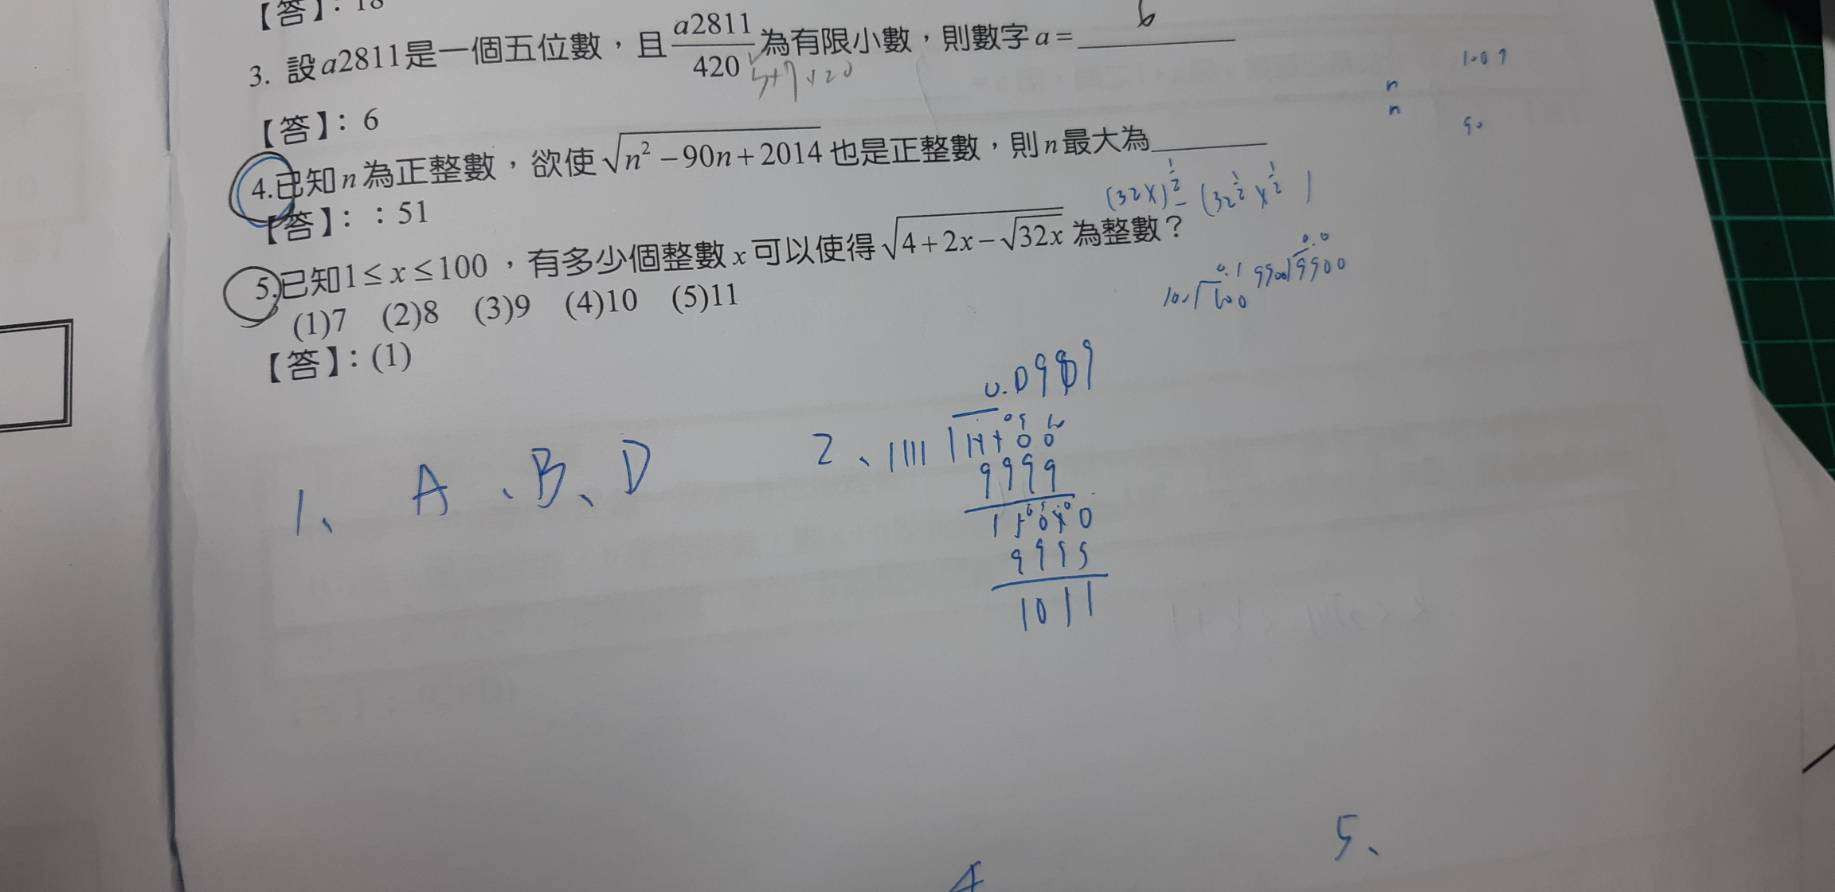 【答】：18
3. 設a2811是一個五位數，且 a2811/420 為有限小數，則數字a= 6
【答】：6
4.已知n為正整數，欲使√(n²－90n＋2014)也是正整數，則n最大為______
【答】：：51
(32x)^½ = (32^½ x^½)
5.已知1≤x≤100，有多少個整數x可以使得√(4＋2x－√(32x))為整數？
(1)7 (2)8 (3)9 (4)10 (5)11
【答】：(1)
0.0989
1、A、B、D
2、1111
9999
9995
1011
5、
4